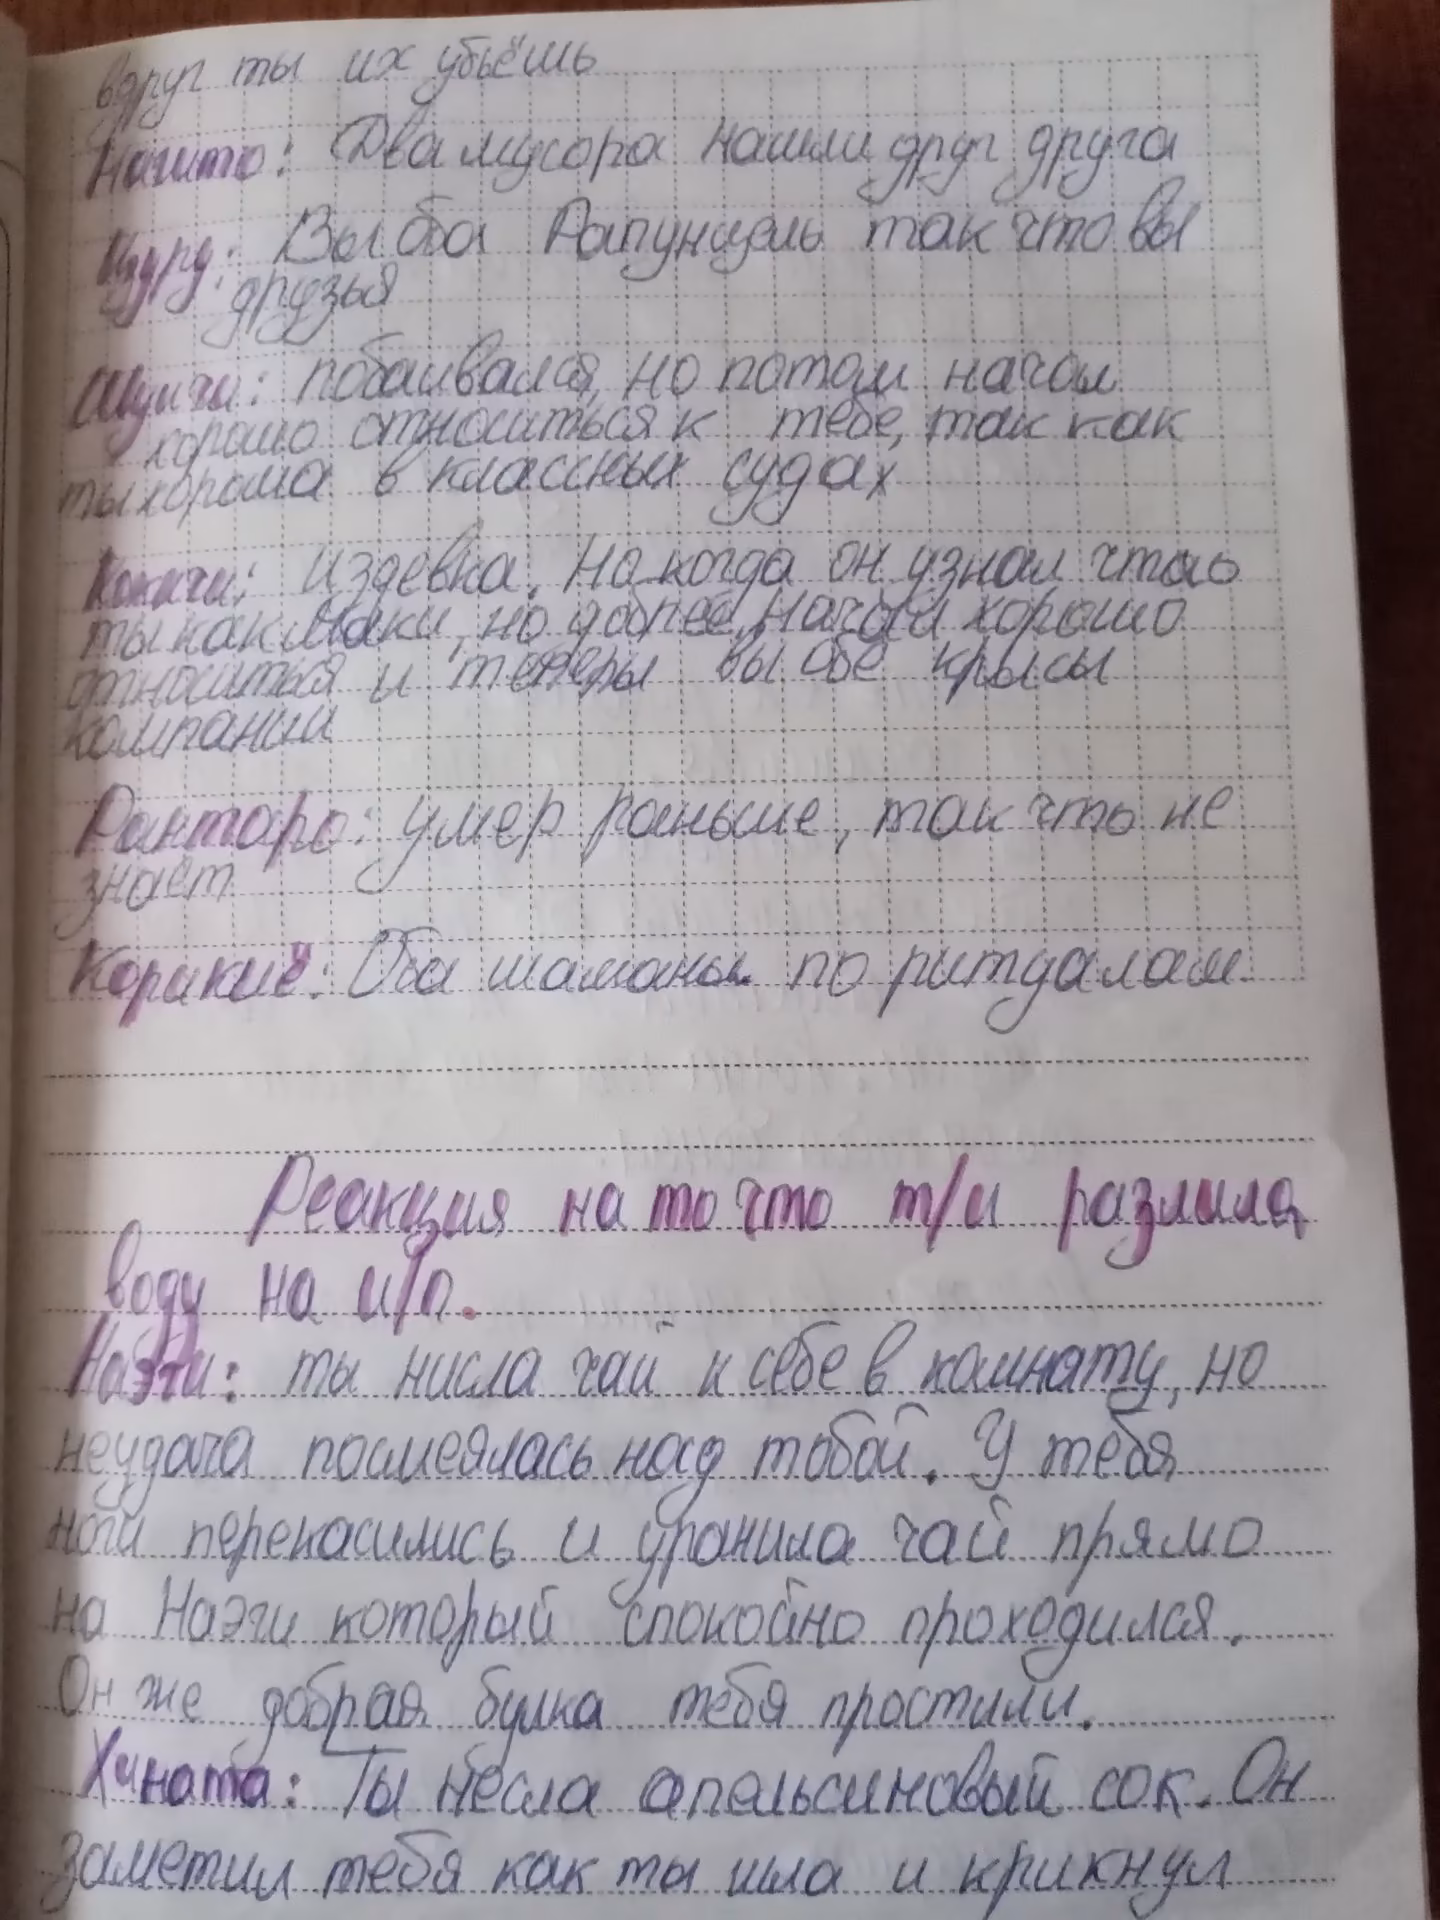 вдруг ты их убьёшь
Нагито: Два мусора нашли друг друга
Изуру: Вы оба Рапунцель так что вы
друзья
Шуичи: побаивался, но потом начал
хорошо относиться к тебе, так как
ты хороша в классных судах
Кокичи: издевка. Но когда он узнал что
ты как Маки, но добрее, начал хорошо
относиться и теперь вы обе крысы
компании
Рантаро: умер раньше, так что не
знает
Корикиё: Оба шаманы по ритуалам
Реакция на то что т/и разлила
воду на и/п.
Наэги: ты нисла чай к себе в комнату, но
неудача посмеялась над тобой. У тебя
ноги перекасились и уранила чай прямо
на Наэги который спокойно проходился.
Он же добрая булка тебя простили.
Хината: Ты несла апельсиновый сок. Он
заметил тебя как ты шла и крикнул